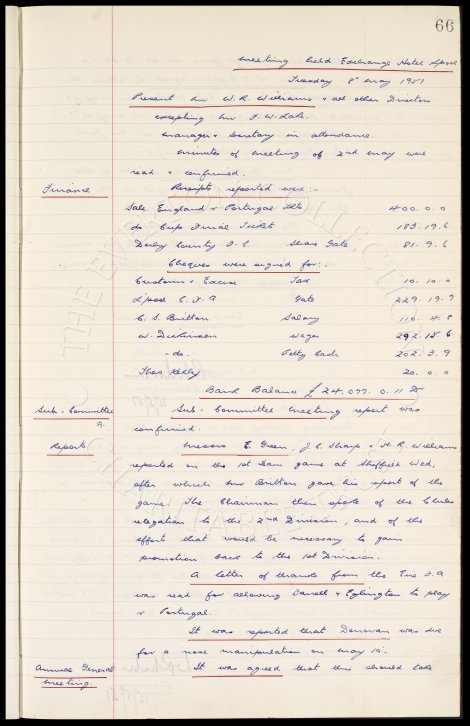 66
Meeting held Exchange Hotel L'pool
Tuesday 8th May 1951
Present Mr W. R. Williams & all other Directors
excepting Mr F. W. Lake.
Manager & Secretary in attendance.
Minutes of meeting of 2nd May were
read & confirmed.
Finance Receipts reported were:-
Sale England & Portugal tkts 400. 0. 0
do Cup Final Tickets 183. 19. 6
Derby County F. C. Share Gate 81. 9. 6
Cheques were signed for:-
Customs & Excise Tax 10. 10. 0
L'pool C. F. A Gate 229. 19. 9
C. S. Britton Salary 110. 4. 8
W. Dickinson Wages 292. 18. 6
- do - Petty Cash 202. 3. 9
Thos Kelly 20. 0. 0
Bank Balance £ 24,077. 0. 11 Dr
Sub-Committee Sub-Committee meeting report was
confirmed.
Reports Messrs E. Green, J. C. Sharp & N. R. Williams
reported on the 1st Team game at Sheffield Wed,
after which Mr Britton gave his report of the
game. The Chairman then spoke of the Clubs
relegation to the 2nd Division, and of the
efforts that would be necessary to gain
promotion back to the 1st Division.
A letter of thanks from the Eire F. A
was read for allowing Farrell & Eglington to play
v Portugal.
It was reported that Donovan was due
for a nose manipulation on May 15.
Annual General It was agreed that this should take
Meeting.
THE EVERTON COLLECTION
CHARITABLE TRUST